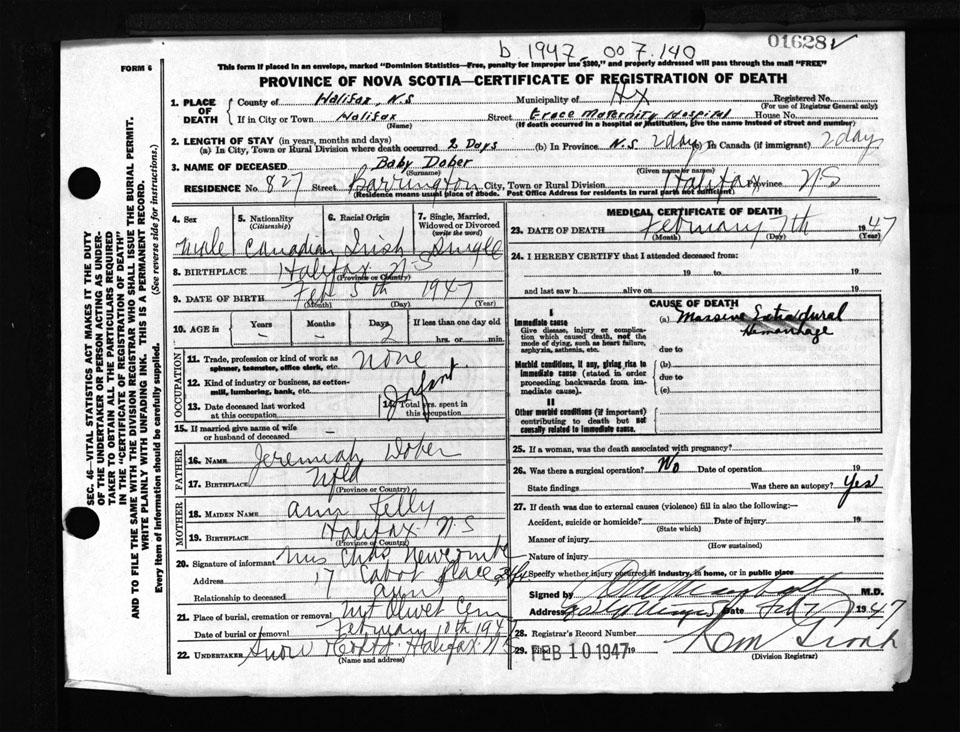 b 1947 007.140
01628
FORM 6
This form if placed in an envelope, marked "Dominion Statistics—Free, penalty for improper use $300," and properly addressed will pass through the mail "FREE"
PROVINCE OF NOVA SCOTIA—CERTIFICATE OF REGISTRATION OF DEATH
SEC. 46—VITAL STATISTICS ACT MAKES IT THE DUTY
OF THE UNDERTAKER OR PERSON ACTING AS UNDER-
TAKER TO OBTAIN ALL THE PARTICULARS REQUIRED
IN THE "CERTIFICATE OF REGISTRATION OF DEATH"
AND TO FILE THE SAME WITH THE DIVISION REGISTRAR WHO SHALL ISSUE THE BURIAL PERMIT.
WRITE PLAINLY WITH UNFADING INK. THIS IS A PERMANENT RECORD.
Every item of Information should be carefully supplied. (See reverse side for instructions.)
1. PLACE OF DEATH
County of Halifax, N.S Municipality of Hx Registered No.
(For use of Registrar General only)
If in City or Town Halifax Street Grace Maternity Hospital House No.
(Name) (If death occurred in a hospital or institution, give the name instead of street and number)
2. LENGTH OF STAY (in years, months and days)
(a) In City, Town or Rural Division where death occurred 2 Days (b) In Province N.S. 2 days (c) In Canada (if immigrant) 2 days
3. NAME OF DECEASED Baby Dober
(Surname) (Given name or names)
RESIDENCE No. 827 Street Barrington City, Town or Rural Division Halifax Province NS
(Residence means usual place of abode. Post Office Address for residents in rural parts not sufficient)
4. Sex 5. Nationality (Citizenship) 6. Racial Origin 7. Single, Married, Widowed or Divorced (write the word)
Male Canadian Irish Single
8. BIRTHPLACE Halifax N-S
(Province or Country)
9. DATE OF BIRTH Feb 5th 1947
(Month) (Day) (Year)
10. AGE in Years Months Days If less than one day old
– – 2 hrs. or minutes
OCCUPATION
11. Trade, profession or kind of work as spinner, teamster, office clerk, etc. None
12. Kind of industry or business, as cotton-mill, lumbering, bank, etc.
Infant
13. Date deceased last worked at this occupation 14. Total yrs. spent in this occupation
15. If married give name of wife or husband of deceased –
FATHER
16. NAME Jeremiah Dober
17. BIRTHPLACE Nfld
(Province or Country)
MOTHER
18. MAIDEN NAME Ann
19. BIRTHPLACE Halifax N-S
(Province or Country)
20. Signature of informant Mrs Chas Newcombe
Address 17 Cabot Place Hfx.
Relationship to deceased aunt
21. Place of burial, cremation or removal Mt Olivet Cem
Date of burial or removal February 10th 1947
22. UNDERTAKER Snow Halifax N-S
(Name and address)
MEDICAL CERTIFICATE OF DEATH
23. DATE OF DEATH February 7th 1947
(Month) (Day) (Year)
24. I HEREBY CERTIFY that I attended deceased from:
19 to 19
and last saw h alive on 19
CAUSE OF DEATH
I
Immediate cause (a) Massive Extradural
Hemorrhage
Give disease, injury or complication which caused death, not the mode of dying, such as heart failure, asphyxia, asthenia, etc.
due to
Morbid conditions, if any, giving rise to immediate cause (stated in order proceeding backwards from immediate cause).
(b)
due to
(c)
II
Other morbid conditions (if important) contributing to death but not causally related to immediate cause.
25. If a woman, was the death associated with pregnancy?
26. Was there a surgical operation? No Date of operation 19
State findings Was there an autopsy? Yes
27. If death was due to external causes (violence) fill in also the following:—
Accident, suicide or homicide? Date of injury 19
(State which)
Manner of injury
(How sustained)
Nature of injury
Specify whether injury occurred in industry, in home, or in public place
Signed by M.D.
Address Date Feb 7 1947
28. Registrar's Record Number
29. Filed FEB 10 1947 19
(Division Registrar)